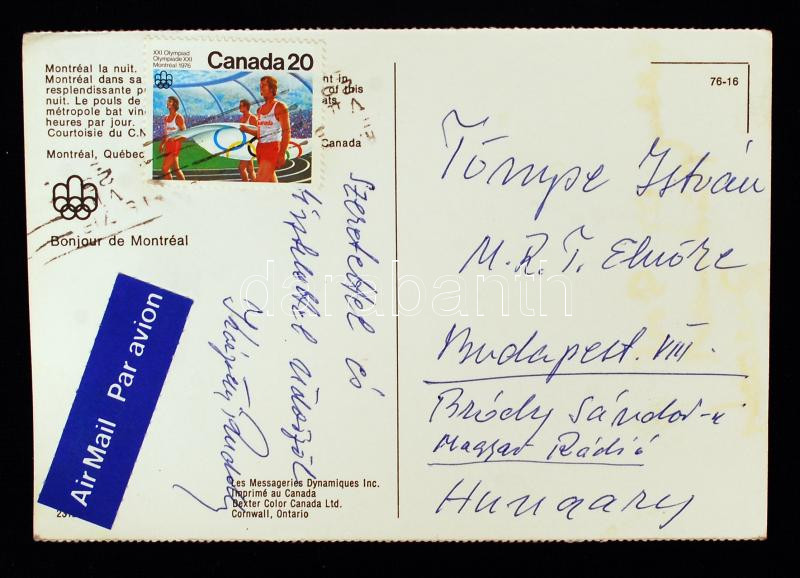 Montréal la nuit.
Montréal dans sa
resplendissante
nuit. Le pouls de
métropole bat
heures par jour.
Courtoisie du C.N
Montréal, Québec
t in
of this
ats
Canada
XXI Olympiad
Olympiade XXI
Montréal 1976
Canada 20
Canada
Bonjour de Montréal
Air Mail Par avion
Szeretettel és
tisztelettel üdvözöl
Les Messageries Dynamiques Inc.
Imprimé au Canada
Dexter Color Canada Ltd.
Cornwall, Ontario
76-16
Tömpe István
M.R.T. Elnöke
Budapest. VIII.
Bródy Sándor-u
Magyar Rádió
Hungary
darabanth